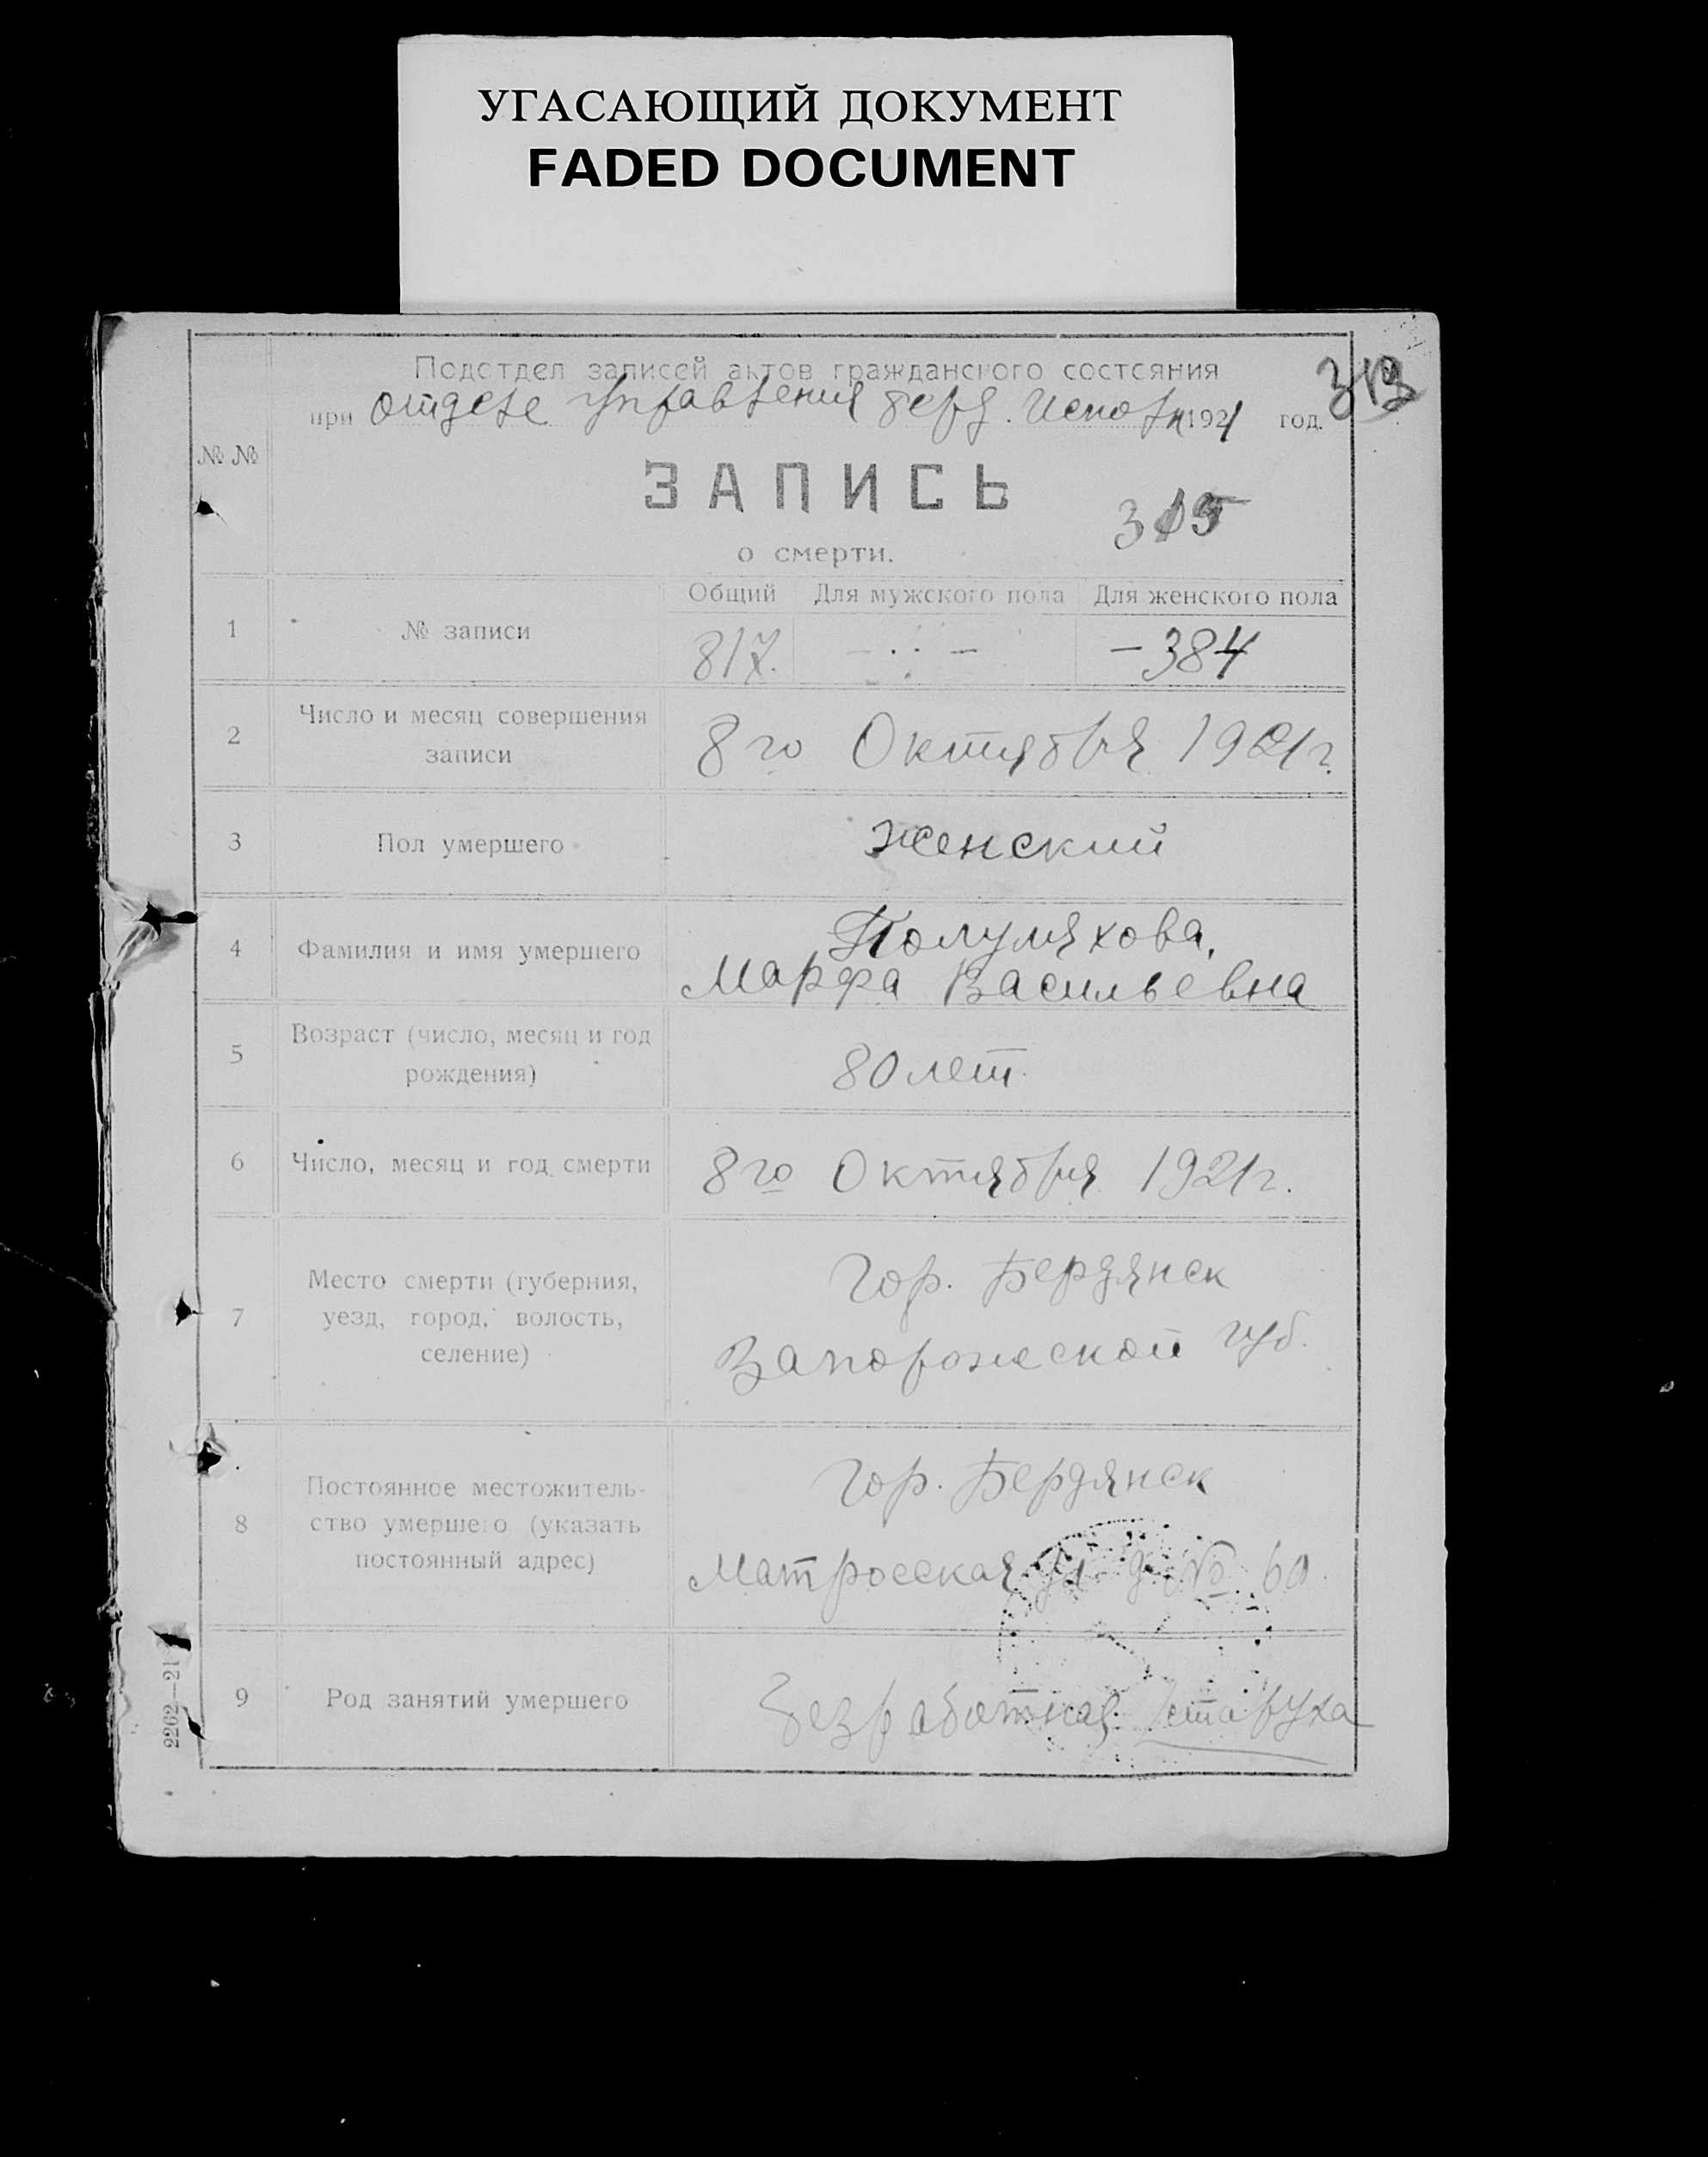 УГАСАЮЩИЙ ДОКУМЕНТ
FADED DOCUMENT
Подотдел записей актов гражданского состояния
при отделе управления берд. Исполк 1921 год.
313
№ №
ЗАПИСЬ
315
о смерти.
Общий Для мужского пола Для женского пола
1 № записи 817. – 384
2 Число и месяц совершения
записи
8го Октября 1921 г.
3 Пол умершего женский
4 Фамилия и имя умершего
Полумяхова,
Марфа Васильевна
5 Возраст (число, месяц и год
рождения)
80 лет
6 Число, месяц и год смерти 8го Октября 1921 г.
7 Место смерти (губерния,
уезд, город, волость,
селение)
Гор. Бердянск
Запорожской губ.
8 Постоянное местожитель-
ство умершего (указать
постоянный адрес)
Гор. Бердянск
Матросская ул д. № 60
9 Род занятий умершего безработная старуха
2262—21